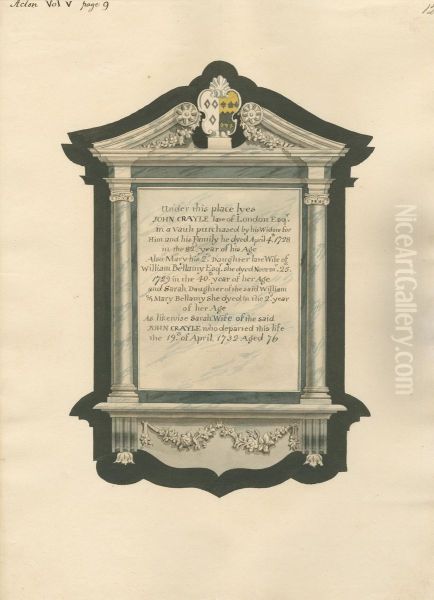 Acton Vol V page 9
12
Under this place lyes
JOHN CRAYLE late of London Esqr.
in a Vault purchased by his Widow for
Him and his Family he dyed April 4th. 1728
in the 82d. year of his Age
Also Mary his 2d. Daughter late Wife of
William Bellamy Esqr. She dyed Novem. 25.
1729 in the 40. year of her Age
and Sarah Daughter of the said William
& Mary Bellamy She dyed in the 2d. year
of her Age
As likewise Sarah Wife of the said
JOHN CRAYLE who departed this life
the 19th. of April, 1732 Aged 76
NiceArtGallery.com